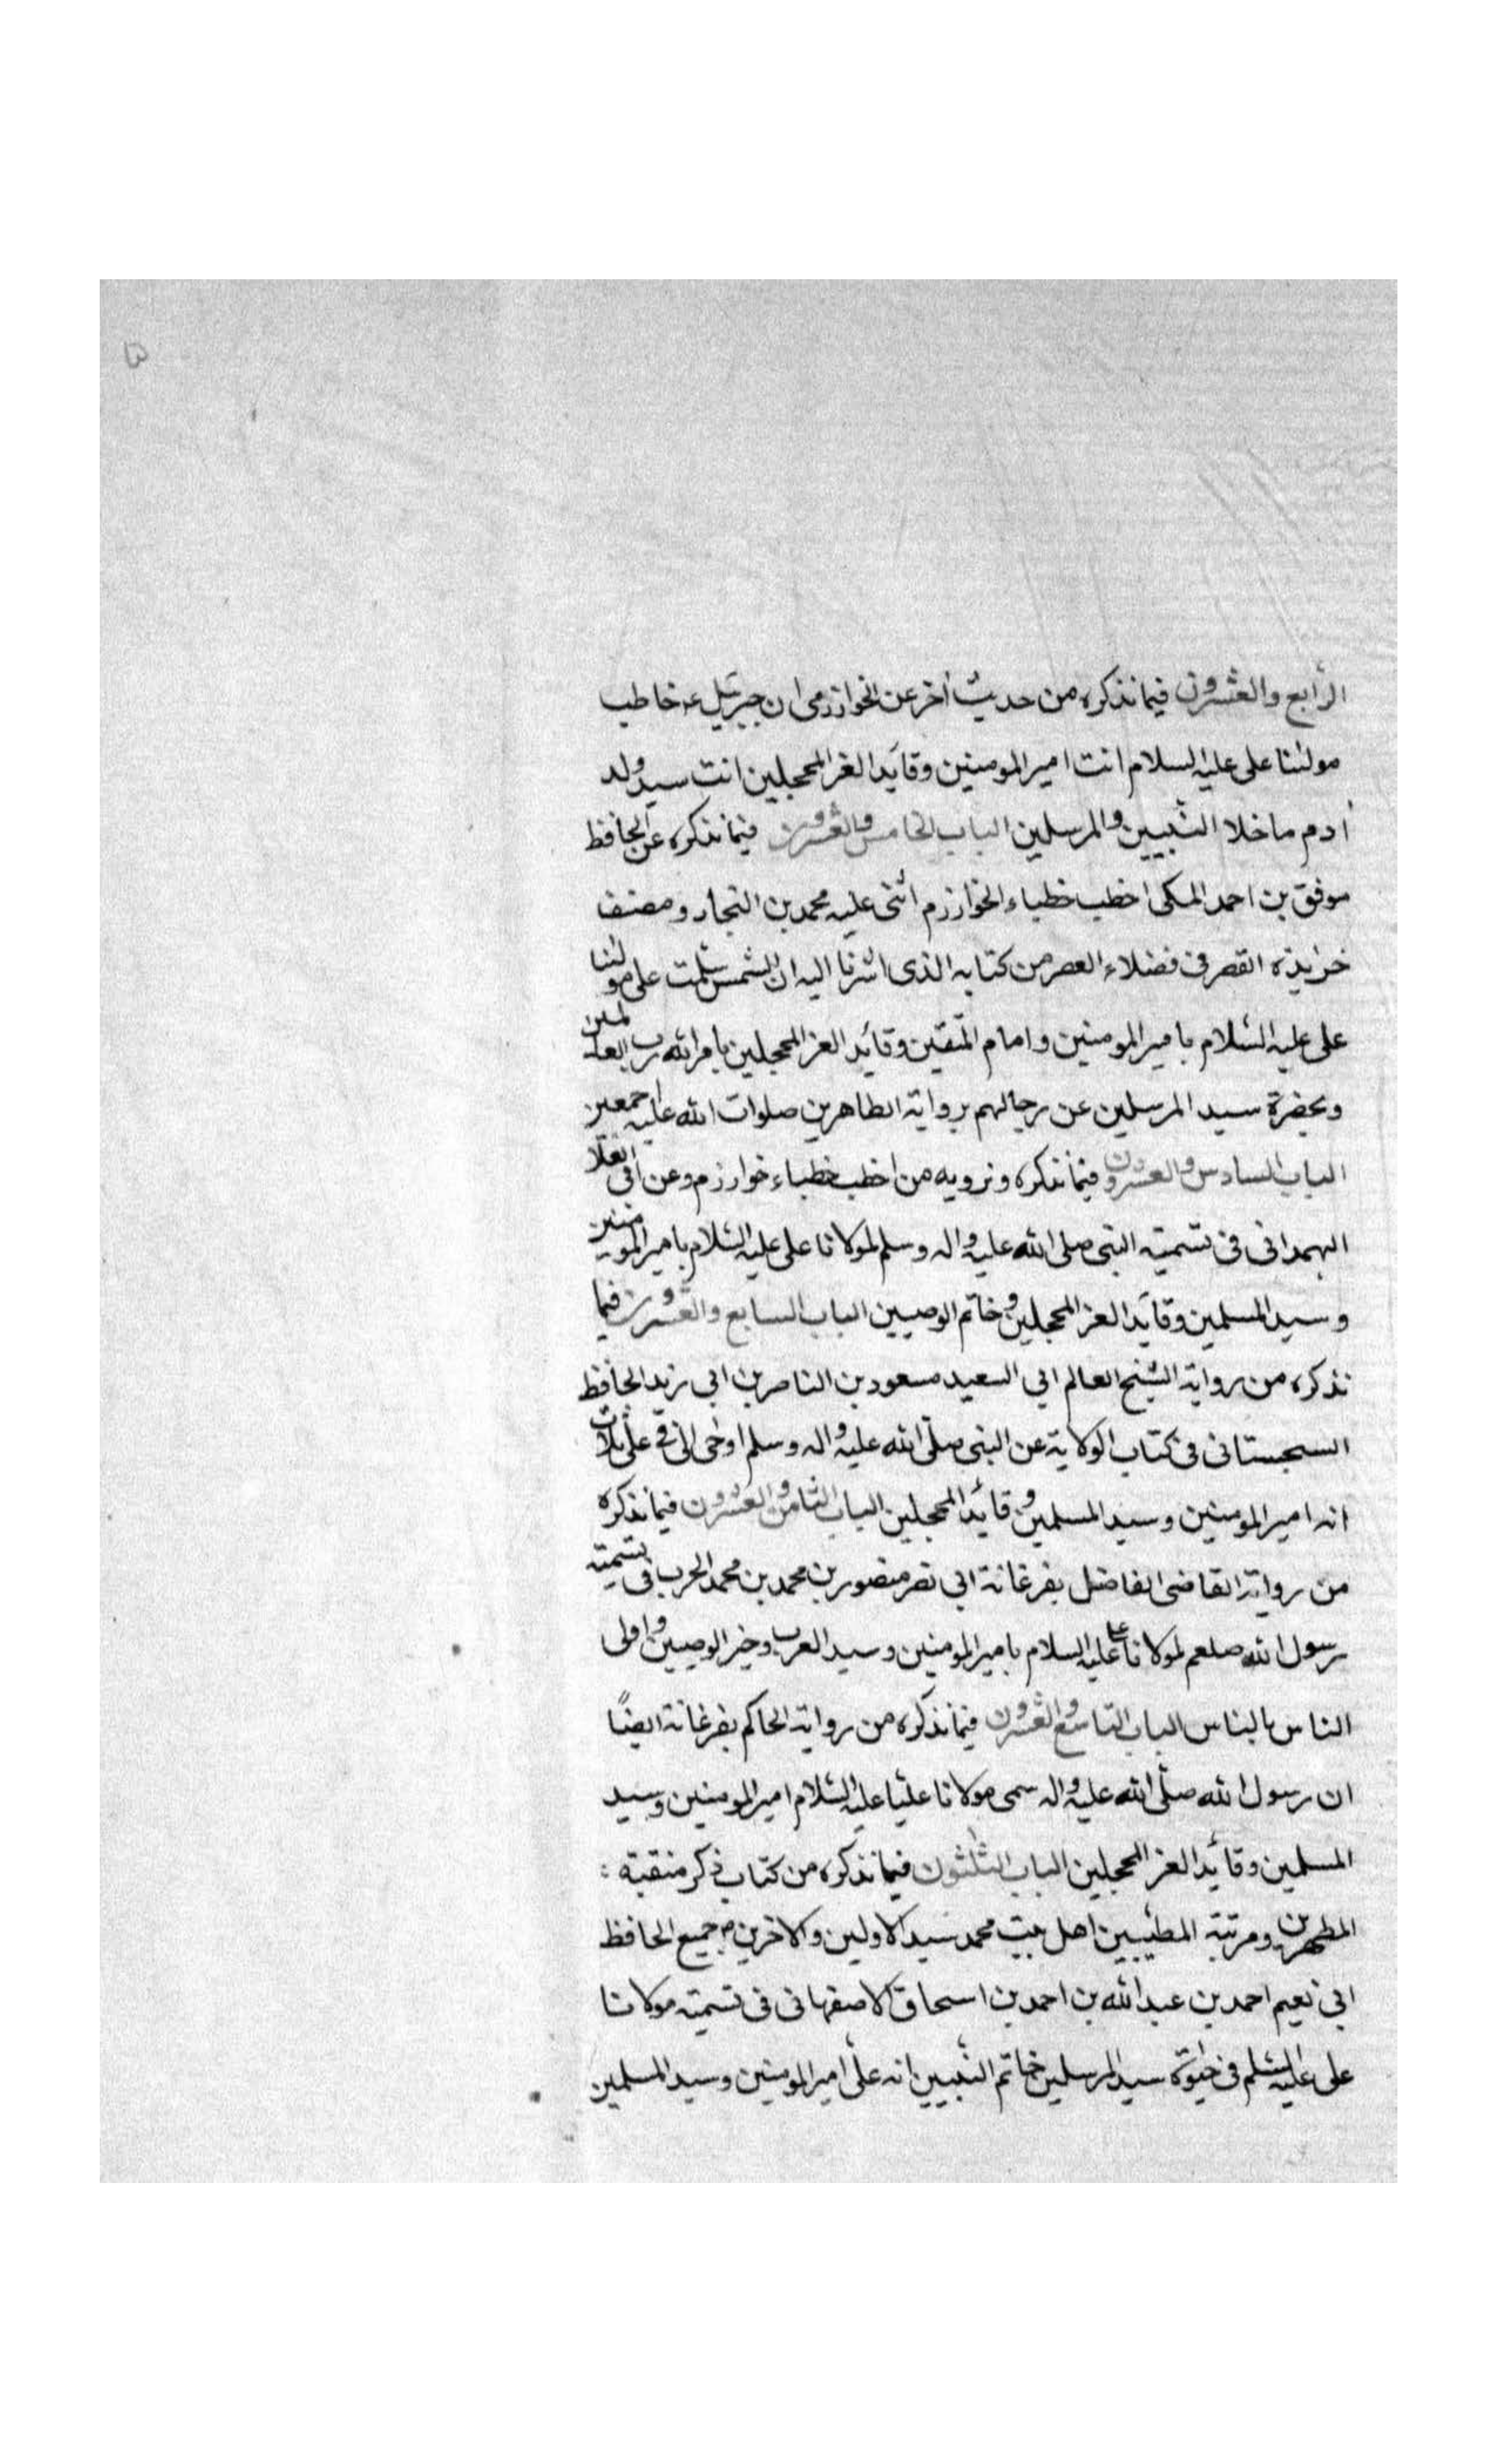 الرابع والعشرون فيما نذكره من حديث آخر عن الخوارزمى ان جبرئيل ع خاطب
مولىنا على عليه السلام انت امير المومنين وقائد الغر المحجلين انت سيد ولد
آدم ما خلا النبيين والمرسلين الباب الخامس والعشرون فيما نذكره عن الحافظ
موفق بن احمد المكى اخطب خطباء الخوارزم اثنى عليه محمد بن النجار ومصنف
خرايدة القصر فى فضلاء العصر من كتابه الذى اشرنا اليه ان الشمس سلمت على مولىنا
على عليه السلام بامير المومنين وامام المتقين وقائد الغر المحجلين بامر الله رب العلمين
وبحضرة سيد المرسلين عن رجالهم برواية الطاهرين صلوات الله عليه اجمعين
الباب السادس والعشرون فيما نذكره ونرويه من اخطب خطباء خوارزم وعن ابى العلا
الهمدانى فى تسمية النبى صلى الله عليه واله وسلم لمولانا على عليه السلام بامير المومنين
وسيد المسلمين وقائد الغر المحجلين وخاتم الوصيين الباب السابع والعشرون فيما
نذكره من رواية الشيخ العالم ابى السعيد مسعود بن الناصر بن ابى زيد الحافظ
السجستانى فى كتاب الولاية عن النبى صلى الله عليه واله وسلم اوحى الى فى على ثلاث
انه امير المومنين وسيد المسلمين وقائد المحجلين الباب الثامن والعشرون فيما نذكره
من رواية القاضى الفاضل بفرغانة ابى نصر منصور بن محمد بن محمد الحرب فى تسمية
رسول الله صلعم لمولانا على عليه السلام بامير المومنين وسيد العرب وخير الوصيين واولى
الناس بالناس الباب التاسع والعشرون فيما نذكره من رواية الحاكم بفرغانة ايضًا
ان رسول الله صلى الله عليه واله سمى مولانا عليا عليه السلام امير المومنين وسيد
المسلمين وقائد الغر المحجلين الباب الثلثون فيما نذكره من كتاب ذكر منقبة
المطهرين ومرتبة المطيبين اهل بيت محمد سيد الاولين والاخرين جميع الحافظ
ابى نعيم احمد بن عبد الله بن احمد بن اسحاق الاصفهانى فى تسمية مولانا
على عليه السلم فى حيوة سيد المرسلين خاتم النبيين انه على امير المومنين وسيد المسلمين